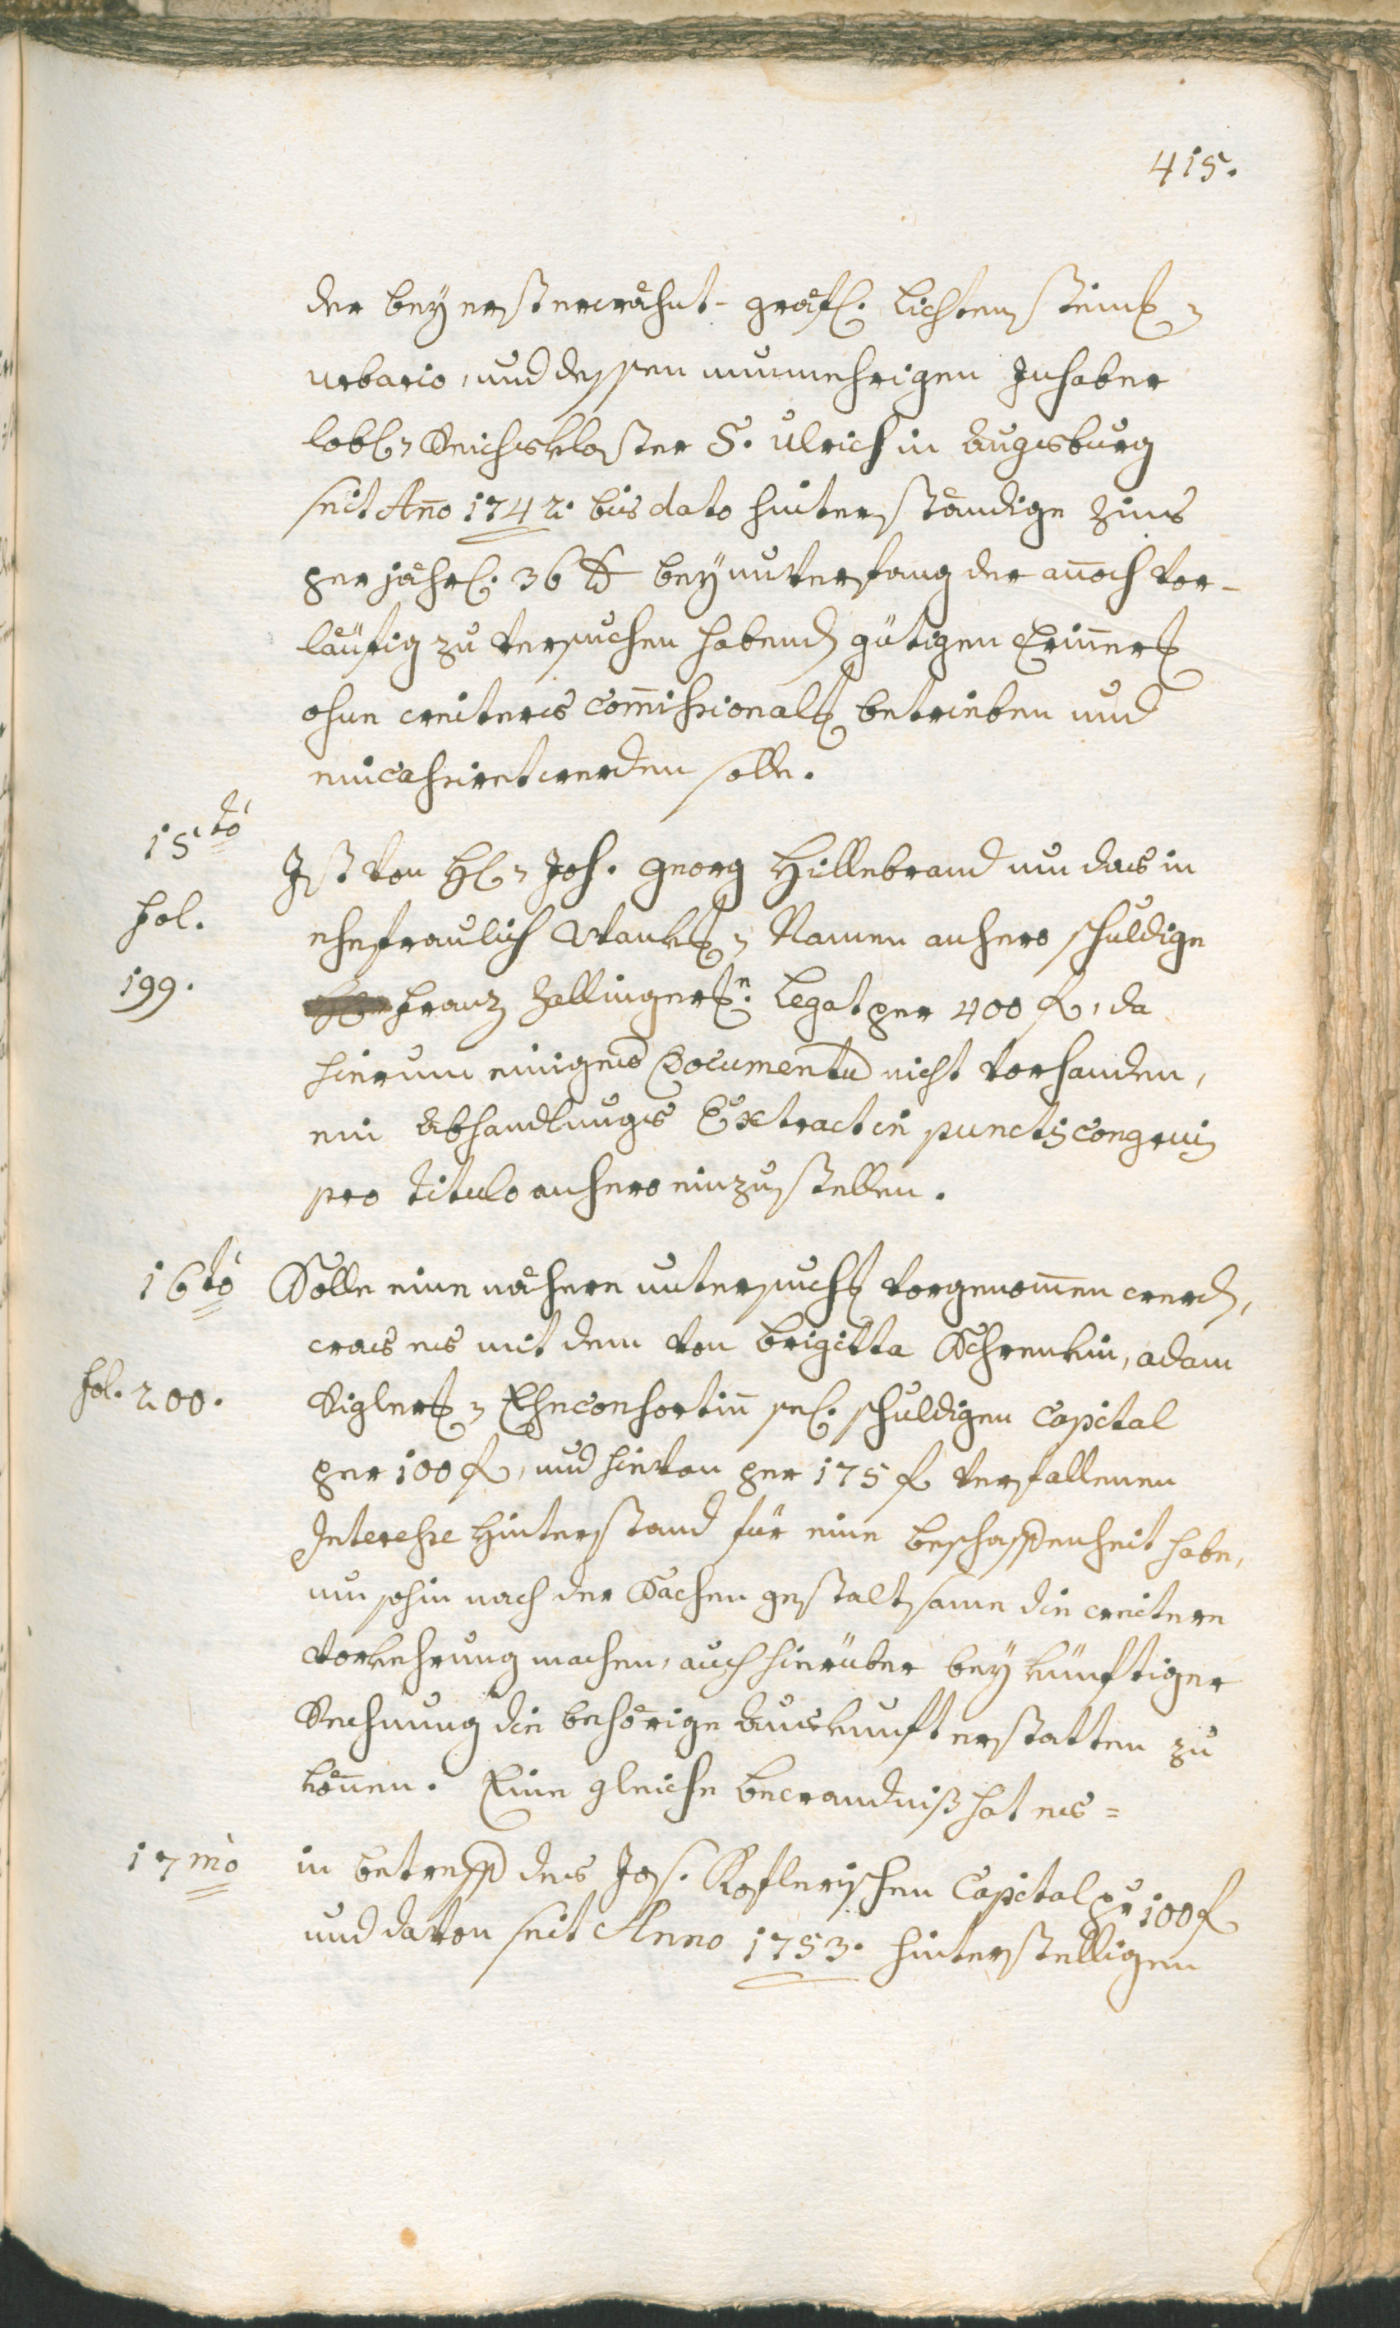 415.
der bey ersterwähnt- gräfl. Lichtensteinl.
urbario, und dessen nunmehrigen Inhaber
lobl. Reichskloster S. Ulrich in Augsburg
seit Año 1742. bis dato hinterständige Zins
per jährl. 36 ℔ bey unterfang der añoch vor-
läufig zu versuchen habend gütigen Eriñerg
ohne weiteres com̄issionalr betrieben und
eincassiret werden solle.
15tò
fol.
199.
Ist von H. Joh. Georg Hillebrand um das in
ehefraulich Namen anhero schuldige
Franz Zallingerl. Legat per 400 f, da
hierum einiges Documentum nicht vorhanden,
ein Abhandlungs Extract in punctis congruis
pro titulo anhero einzustellen.
16tò
Solle eine nähere untersuchg vorgenom̄en werd,
was es mit dem von Brigitta Schrenkin, Adam
fol. 200.
Rigler Eheconsortiñ sel. schuldigen Capital
per 100 f, und hievon per 175 f verfallenen
Interesse Hinterstand für eine beschaffenheit habe,
um sohin nach der Sachen gestaltsame die weitere
Vorkehrung machen, auch hierüber bey künftiger
Rechnung die behörige Auskunft erstatten zu
köñen. Eine gleiche bewandniß hat es=
17mò
in betreff des Jos. Koflerischen Capital per 100 f
und davon seit Anno 1753. hinterstelligen